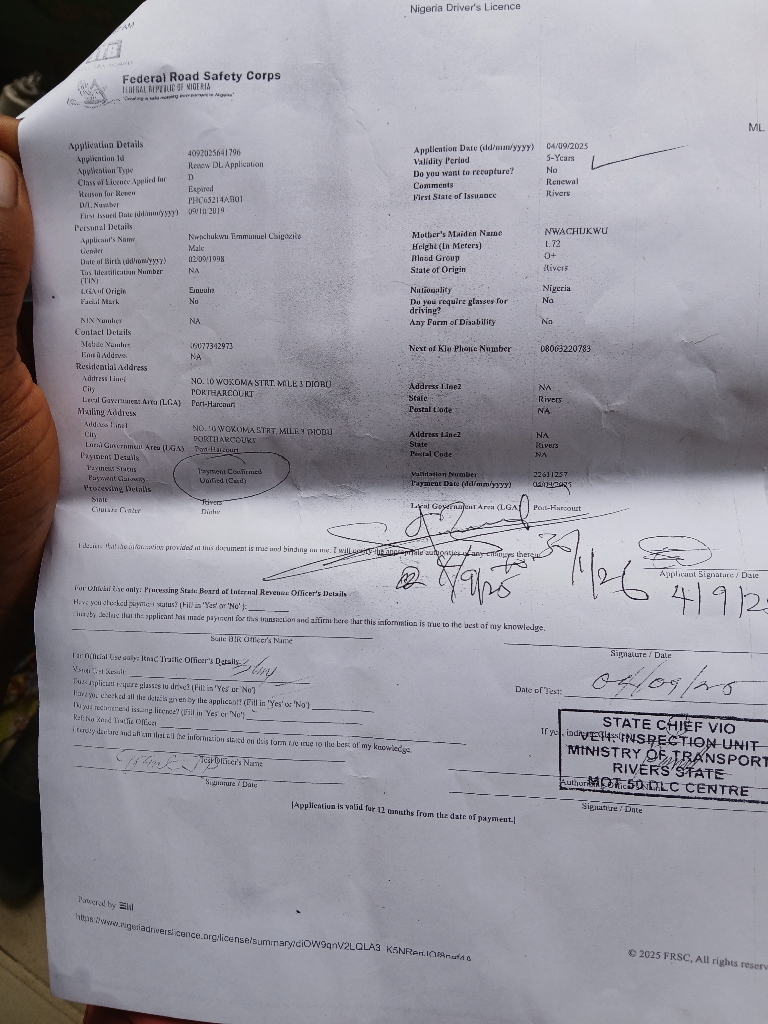 Nigeria Driver's Licence
Federal Road Safety Corps
FEDERAL REPUBLIC OF NIGERIA
ML
Application Details
Application Id 4092025641796
Application Type Renew DL Application
Class of Licence Applied for D
Reason for Renew Expired
D/L Number PHC65214AB01
First Issued Date (dd/mm/yyyy) 09/10/2019
Application Date (dd/mm/yyyy) 04/09/2025
Validity Period 5-Years
Do you want to recapture? No
Comments Renewal
First State of Issuance Rivers
Personal Details
Applicant's Name Nwachukwu Emmanuel Chigozite
Gender Male
Date of Birth (dd/mm/yyyy) 02/09/1998
Tax Identification Number (TIN) NA
LGA of Origin Emouha
Facial Mark No
NIN Number NA
Mother's Maiden Name NWACHUKWU
Height (In Meters) 1.72
Blood Group O+
State of Origin Rivers
Nationality Nigeria
Do you require glasses for driving? No
Any Form of Disability No
Contact Details
Mobile Number 09077342973
Email Address NA
Next of Kin Phone Number 08063220783
Residential Address
Address Line1 NO. 10 WOKOMA STRT. MILE 3 DIOBU
City PORTHARCOURT
Local Government Area (LGA) Port-Harcourt
Address Line2 NA
State Rivers
Postal Code NA
Mailing Address
Address Line1 NO. 10 WOKOMA STRT. MILE 3 DIOBU
City PORTHARCOURT
Local Government Area (LGA) Port-Harcourt
Address Line2 NA
State Rivers
Postal Code NA
Payment Details
Payment Status Payment Confirmed
Payment Gateway Unified (Card)
Validation Number 22611257
Payment Date (dd/mm/yyyy)
Processing Details
State Rivers
Capture Center Diobu
Local Government Area (LGA) Port-Harcourt
I declare that the information provided at this document is true and binding on me. I will notify the appropriate authorities of any changes therein.
4/9/25 to 30/1/26
Applicant Signature / Date
4/9/25
For Official Use only: Processing State Board of Internal Revenue Officer's Details
Have you checked payment status? (Fill in 'Yes' or 'No' ):
I hereby declare that the applicant has made payment for this transaction and affirm here that this information is true to the best of my knowledge.
State BIR Officer's Name
Signature / Date
For Official Use only: Road Traffic Officer's Details
Vision Test Result:
Date of Test: 04/09/25
Does applicant require glasses to drive? (Fill in 'Yes' or 'No')
Have you checked all the details given by the applicant? (Fill in 'Yes' or 'No')
Do you recommend issuing licence? (Fill in 'Yes' or 'No')
If yes,
Ref: No Road Traffic Officer
I hereby declare and affirm that all the information stated on this form are true to the best of my knowledge.
STATE CHIEF VIO
VEH. INSPECTION UNIT
MINISTRY OF TRANSPORT
RIVERS STATE
MOT 50 DLC CENTRE
Test Officer's Name
Signature / Date
Signature / Date
[Application is valid for 12 months from the date of payment.]
Powered by
© 2025 FRSC, All rights reserv